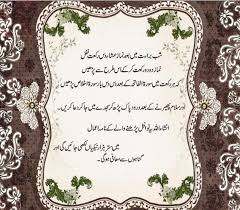 شب برات میں بعد نماز عشاء دس رکعت نفل
نماز دو دو رکعت کر کے اس طرح سے پڑھیں
کہ ہر رکعت میں سورۃ الفاتحہ کے بعد دس بار سورۃ اخلاص پڑھیں
اور سلام پھیرنے کے بعد درود پاک پڑھ کر سجدے میں جا کر دعا کریں۔
انشاءاللہ یہ نوافل پڑھنے والے کے نامہ اعمال
میں ستر ہزار نیکیاں لکھی جائیں گی اور
گناہوں سے معافی ہوگی۔